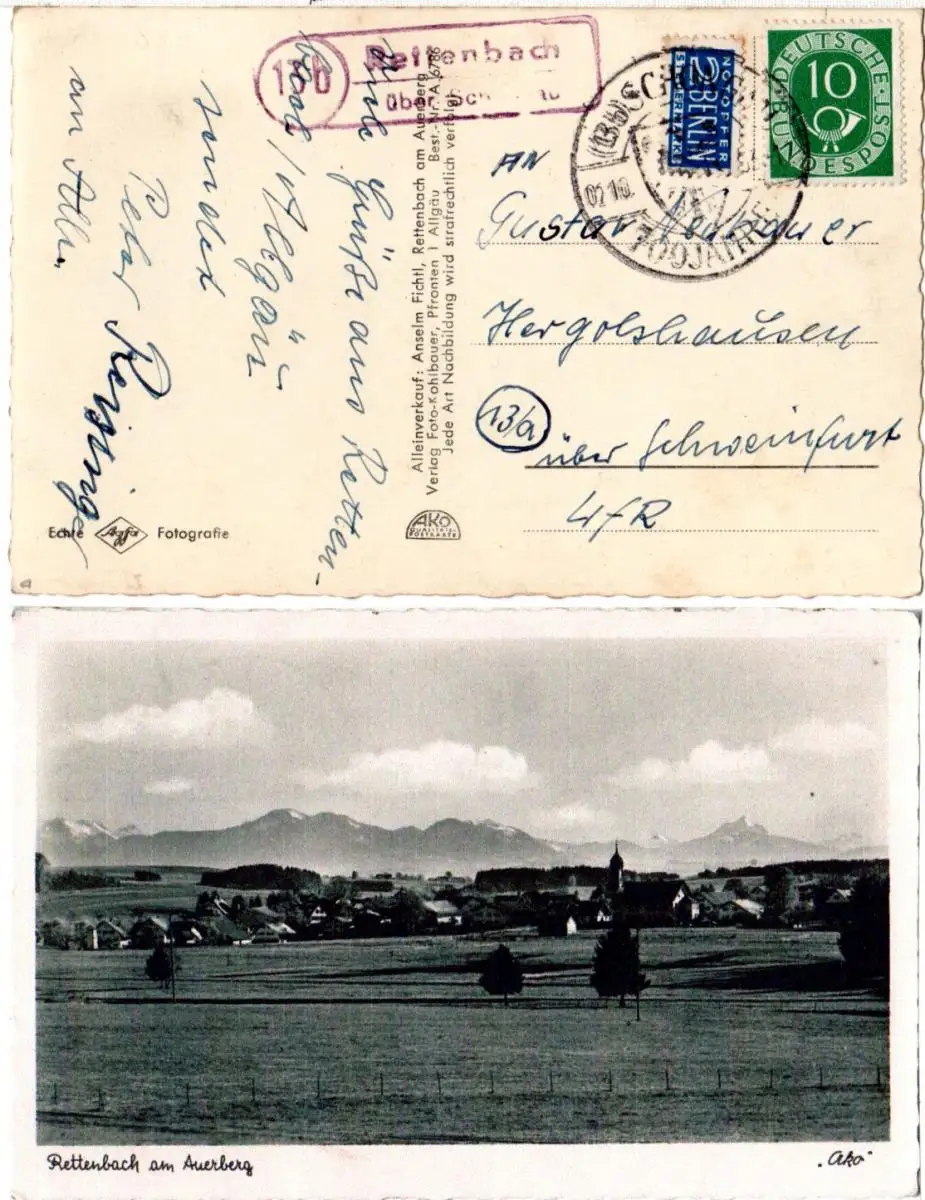 13b
Rettenbach
über
NOTOPFER
2 BERLIN
STEUERMARKE
DEUTSCHE
10
BUNDESPOST
(13b) SCHONGAU
02.10.
700 JAHRE
AN
Gustav Neubauer
Hergolshausen
13/a
über Schweinfurt
UfR
Alleinverkauf: Anselm Fichtl, Rettenbach am Auerberg
Verlag Foto-Kohlbauer, Pfronten 1 Allgäu Best.-Nr. A 6786
Jede Art Nachbildung wird strafrechtlich verfolgt
Grüße aus Retten-
bach / Allgäu
sendet
Peter
an Alle.
Echte Agfa Fotografie
AKO
QUALITÄTS-
POSTKARTE
Rettenbach am Auerberg
„Ako"